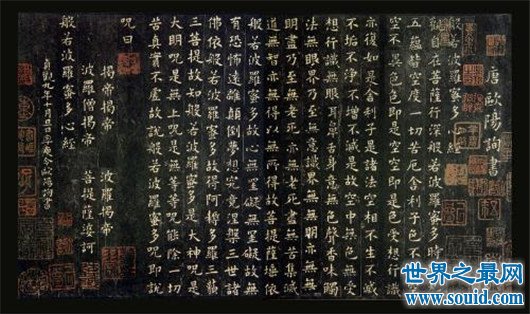 唐歐陽詢書
般若波羅蜜多心經
自在菩薩行深般若波羅蜜多時
五蘊皆空度一切苦厄舍利子色不
空不異色色即是空空即是色受想行識
亦復如是舍利子是諸法空相不生不滅
不垢不淨不增不減是故空中無色無受
想行識無眼耳鼻舌身意無色聲香味觸
法無眼界乃至無意識界無無明亦無無
明盡乃至無老死亦無老死盡無苦集滅
道無智亦無得以無所得故菩提薩埵依
般若波羅蜜多故心無罣礙無罣礙故無
有恐怖遠離顛倒夢想究竟涅槃三世諸
佛依般若波羅蜜多故得阿耨多羅三藐
三菩提故知般若波羅蜜多是大神呪是
大明呪是無上呪是無等等呪能除一切
苦真實不虛故說般若波羅蜜多呪即說
呪曰
揭帝揭帝 波羅揭帝
波羅僧揭帝 菩提薩婆訶
般若波羅蜜多心經
貞觀九年十月旦日率更令歐陽詢書
世界之最网
www.souid.com